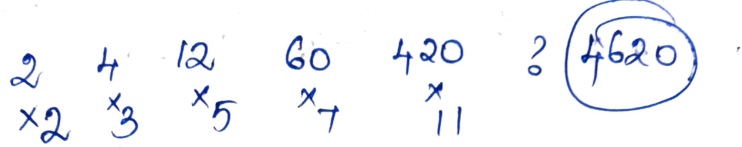 2 4 12 60 420 ? 4620
×2 ×3 ×5 ×7 ×11